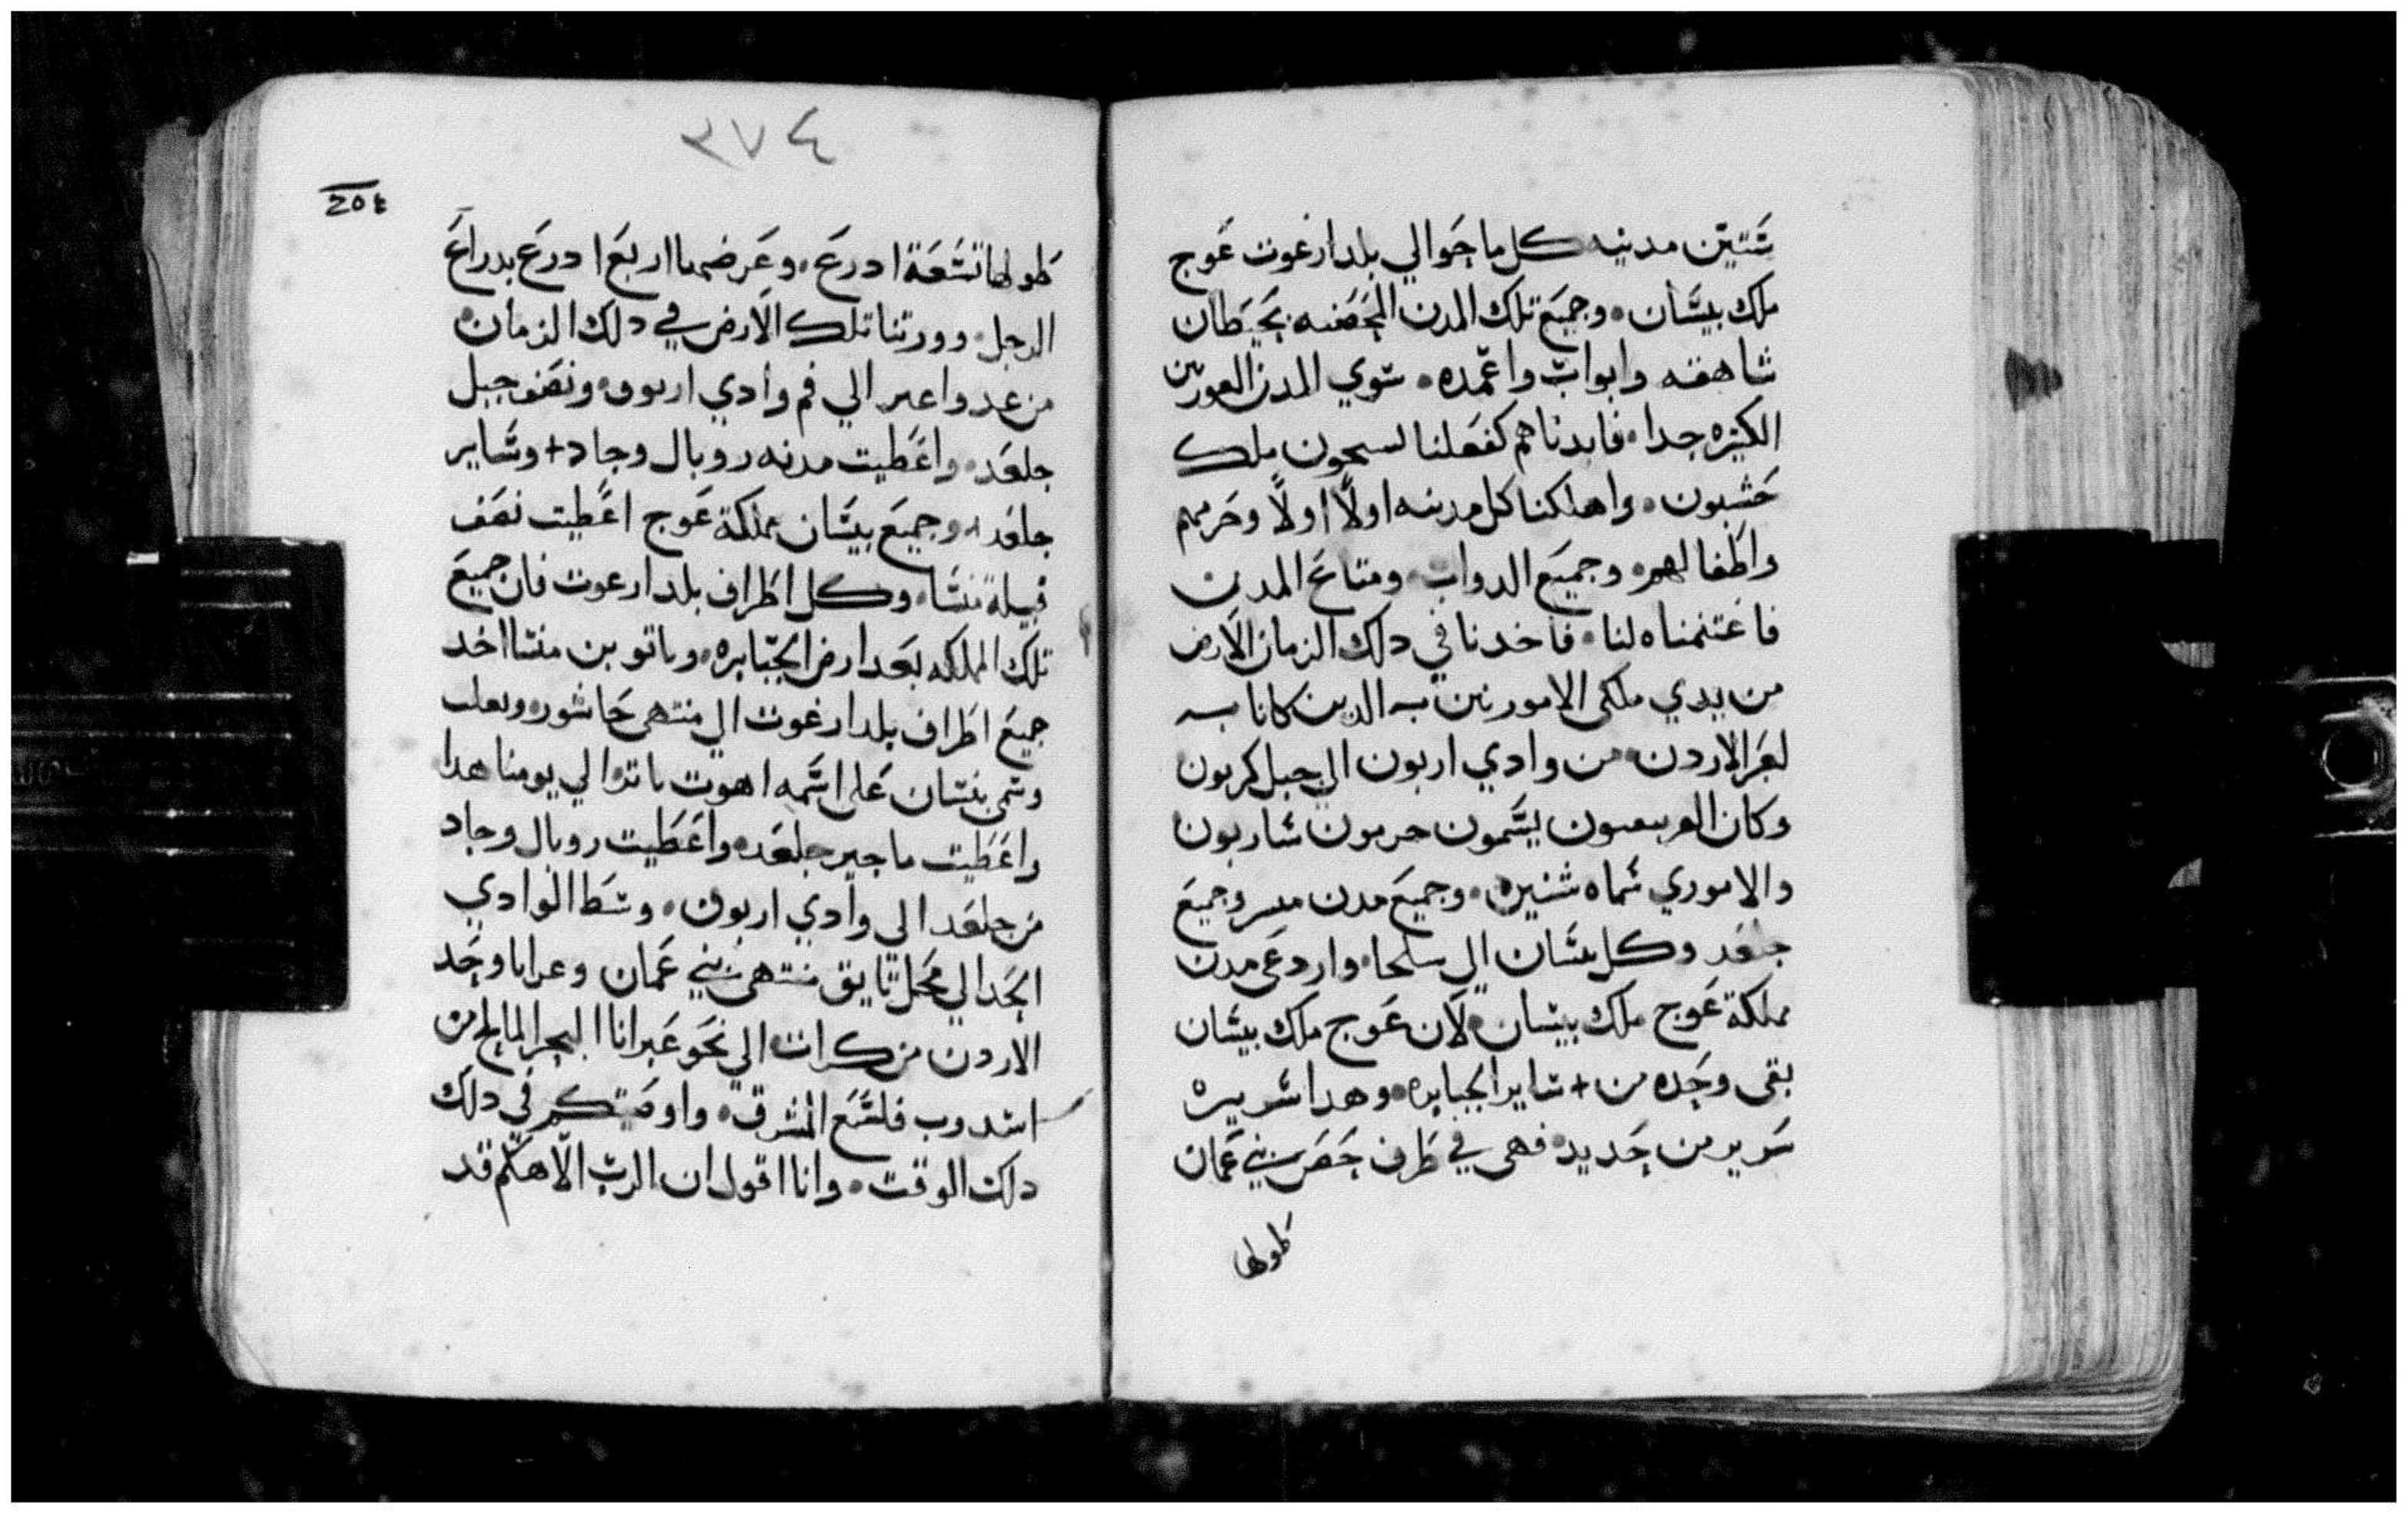 ستين مدينه كل ما حوالي بلد ارغوت عوج
ملك بيسان وجميع تلك المدن المحصنه بحيطان
شاهقه وابواب واعمده سوي المدن
الكثيره جدا فابدناهم كفعلنا لسيحون ملك
حشبون واهلكنا كل مدينه اولاً اولاً وحريمهم
واطفالهم وجميع الدواب ومتاع المدن
فاغتنمناه لنا فاخدنا في دلك الزمان الارض
من يدي ملكى الامورنين الدين كانا
لعبر الاردن من وادي اربون الي جبل كربون
وكان يسمون حرمون شاربون
والاموري سماه شنير وجميع مدن ميسر وجميع
جلعد وكل بيسان الي سلحا واردعى مدن
مملكة عوج ملك بيسان لان عوج ملك بيسان
بقى وحده من + ساير الجبابره وهدا سريره
سرير من حديد فهى في طرف حصن بني عمان
طولها
٣٧٤
طولها تسعة ادرع وعرضها اربع ادرع بدراع
الرجل وورتنا تلك الارض في دلك الزمان
من عدواعير الي فم وادي اربوق ونصف جبل
جلعد واعطيت مدنه روبال وجاد + وساير
جلعد وجميع بيسان مملكة عوج اعطيت نصف
قبيلة منسا وكل اطراف بلد ارعوت فان جميع
تلك المملكه بعد ارض الجبابره وياتو بن منسا اخد
جميع اطراف بلد ارغوت الي منتهى حاشور
وسمى بنسان على اسمه اهوت ياتر الي يومنا هدا
واعطيت ماجير جلعد واعطيت روبال وجاد
من جلعد الي وادي اربوق وسط الوادي
الحد الي محل تايق منتهى بني عمان وعرابا وحد
الاردن من كرات الي نحو عبرانا البحر المالح من
اسدوب فلسع المشرق واوصيتكم في دلك
دلك الوقت وانا اقول ان الرب الاهكم قد